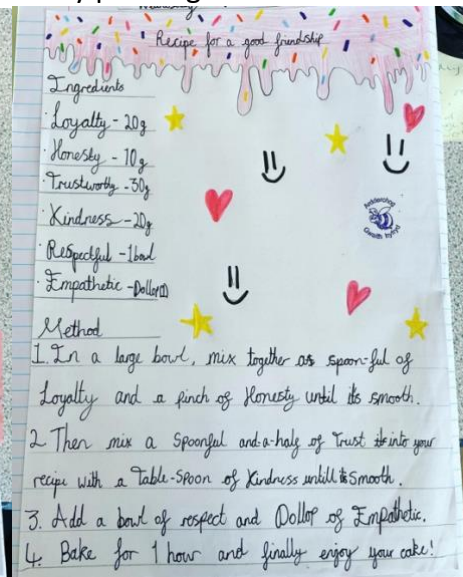 Recipe for a good friendship
Ingredients
· Loyalty - 20g
· Honesty - 10g
· Trustworthy - 30g
· Kindness - 20g
· Respectful - 1 bowl
· Empathetic - Dollop(1)
Ardderchog
Gwaith hyfryd
Method
1. In a large bowl, mix together as spoon-ful of
Loyalty and a pinch of Honesty until its smooth.
2 Then mix a Spoonful and-a-half of Trust into your
recipe with a Table-Spoon of Kindness untill its Smooth.
3. Add a bowl of respect and Dollop of Empathetic.
4. Bake for 1 hour and finally enjoy your cake!